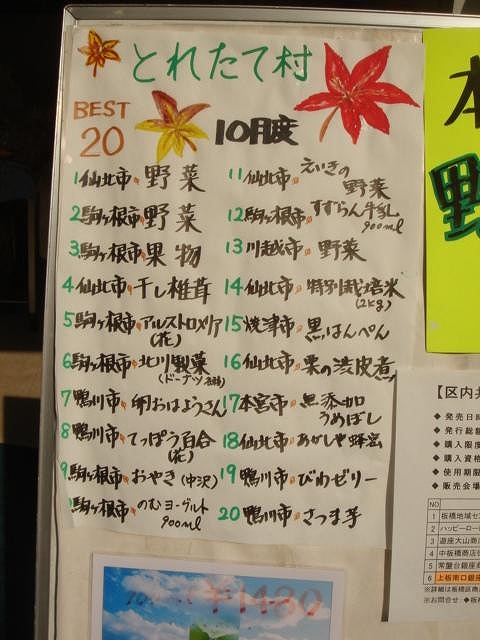 とれたて村
BEST
20
10月度
1 仙北市の野菜
2 駒ヶ根市の野菜
3 駒ヶ根市の果物
4 仙北市の干し椎茸
5 駒ヶ根市のアルストロメリア
(花)
6 駒ヶ根市の北川製菓
(ドーナツ各種)
7 鴨川市の卵おはようさん
8 鴨川市のてっぽう百合
(花)
9 駒ヶ根市のおやき(中沢)
駒ヶ根市ののむヨーグルト
900ml
11 仙北市のえいきの
野菜
12 駒ヶ根市のすずらん牛乳
900ml
13 川越市の野菜
14 仙北市の特別栽培米
(2kg)
15 焼津市の黒はんぺん
16 仙北市の栗の渋皮煮
17 本宮市の無添加
うめぼし
18 仙北市のあかしや蜂蜜
19 鴨川市のびわゼリー
20 鴨川市のさつま芋
本
野
【区内共
◆ 発売日時
◆ 発行総額
◆ 購入限度
◆ 購入資格
◆ 使用期限
◆ 販売会場
NO
1 板橋地域セ
2 ハッピーロー
3 遊座大山商店
4 中板橋商店
5 常盤台銀座
6 上板南口銀座
※詳細は板橋区商店
※お問合せ ◆板橋
¥1480